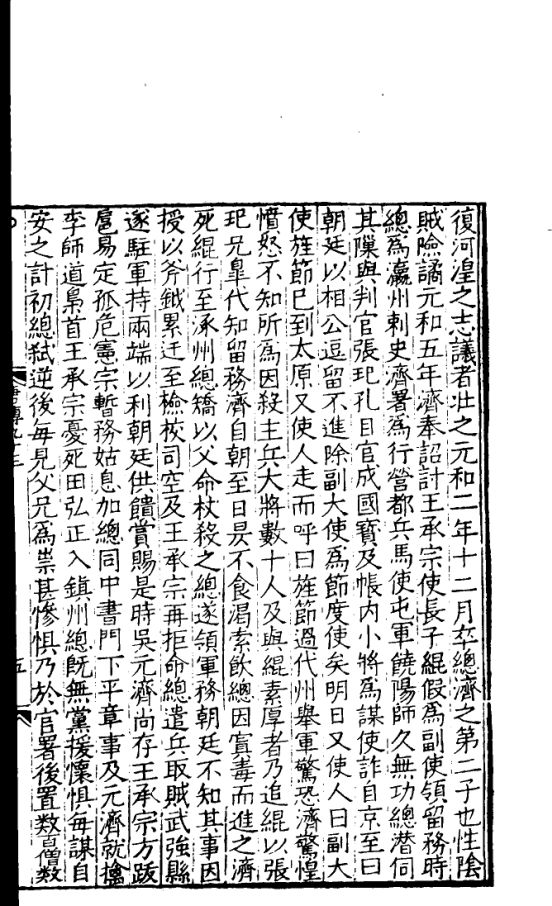 復河湟之志議者壯之元和二年十二月卒總濟之第二子也性陰
賊險譎元和五年濟奉詔討王承宗使長子緄假為副使領留務時
總為瀛州刺史濟署為行營都兵馬使屯軍饒陽師久無功總潛伺
其隟與判官張玘孔目官成國寶及帳內小將為謀使詐自京至曰
朝廷以相公逗留不進除副大使為節度使矣明日又使人曰副大
使旌節已到太原又使人走而呼曰旌節過代州舉軍驚恐濟驚惶
憤怒不知所為因殺主兵大將數十人及與緄素厚者乃追緄以張
玘兄皐代知留務濟自朝至日昃不食渴索飲總因寘毒而進之濟
死緄行至涿州總矯以父命杖殺之總遂領軍務朝廷不知其事因
授以斧鉞累迁至檢校司空及王承宗再拒命總遣兵取賊武強縣
遂駐軍持兩端以利朝廷供饋賞賜是時吳元濟尚存王承宗方跋
扈易定孤危憲宗暫務姑息加總同中書門下平章事及元濟就擒
李師道梟首王承宗憂死田弘正入鎮州總既無黨援懷懼每謀自
安之計初總弒逆後每見父兄為祟甚慘懼乃於官署後置数僧数
五